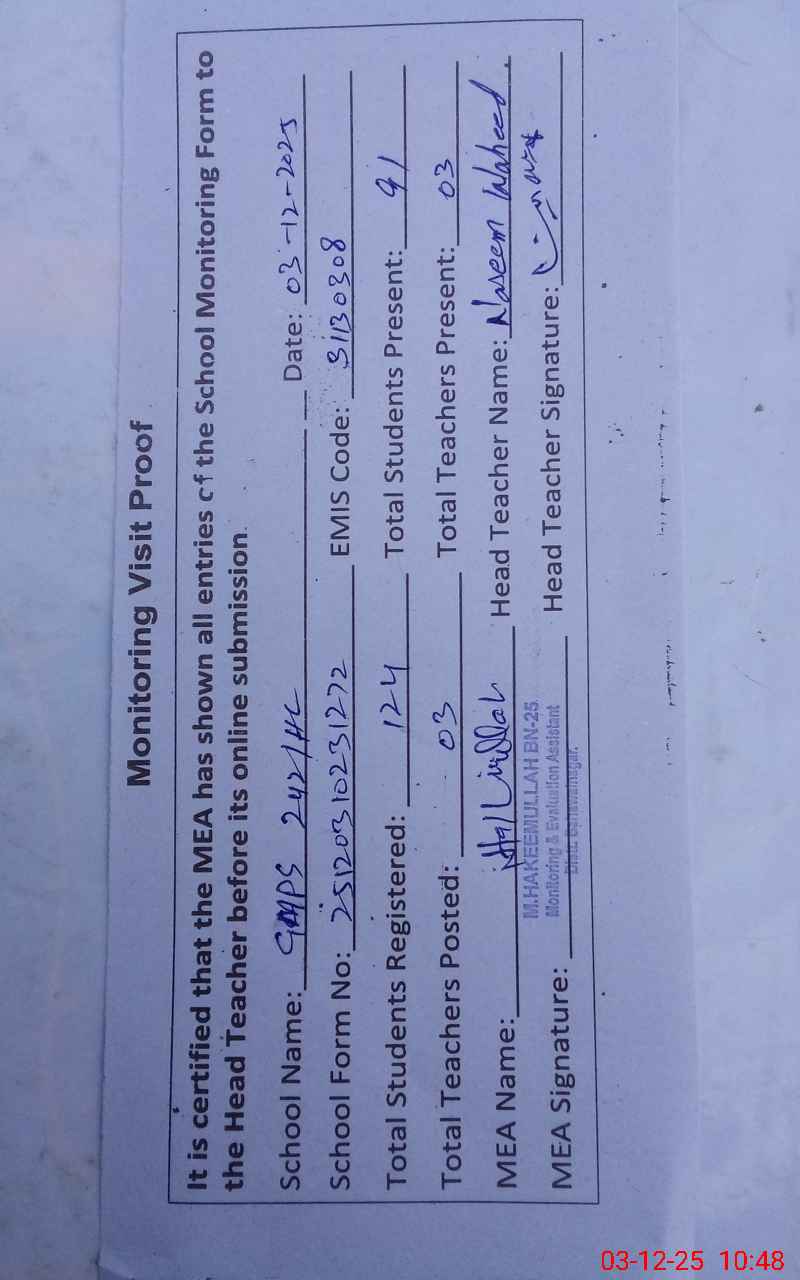 Monitoring Visit Proof
It is certified that the MEA has shown all entries of the School Monitoring Form to
the Head Teacher before its online submission.
School Name: GMPS 242/HL Date: 03-12-2025
School Form No: 25120310231272 EMIS Code: 31130308
Total Students Registered: 124 Total Students Present: 91
Total Teachers Posted: 03 Total Teachers Present: 03
MEA Name: Head Teacher Name: Naseem Waheed
M.HAKEEMULLAH BN-25
Monitoring & Evaluation Assistant
Distt. Bahawalnagar.
MEA Signature: Head Teacher Signature:
03-12-25 10:48